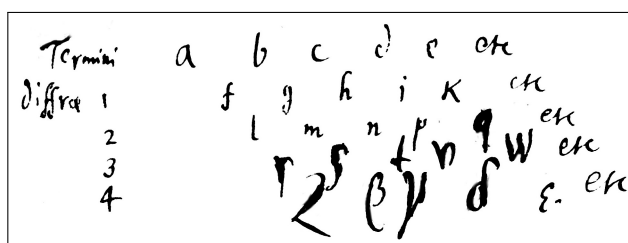 Termini a b c d e etc
diffræ 1 f g h i K etc
2 l m n p q etc
3 r s t v W etc
4 β γ δ ε. etc